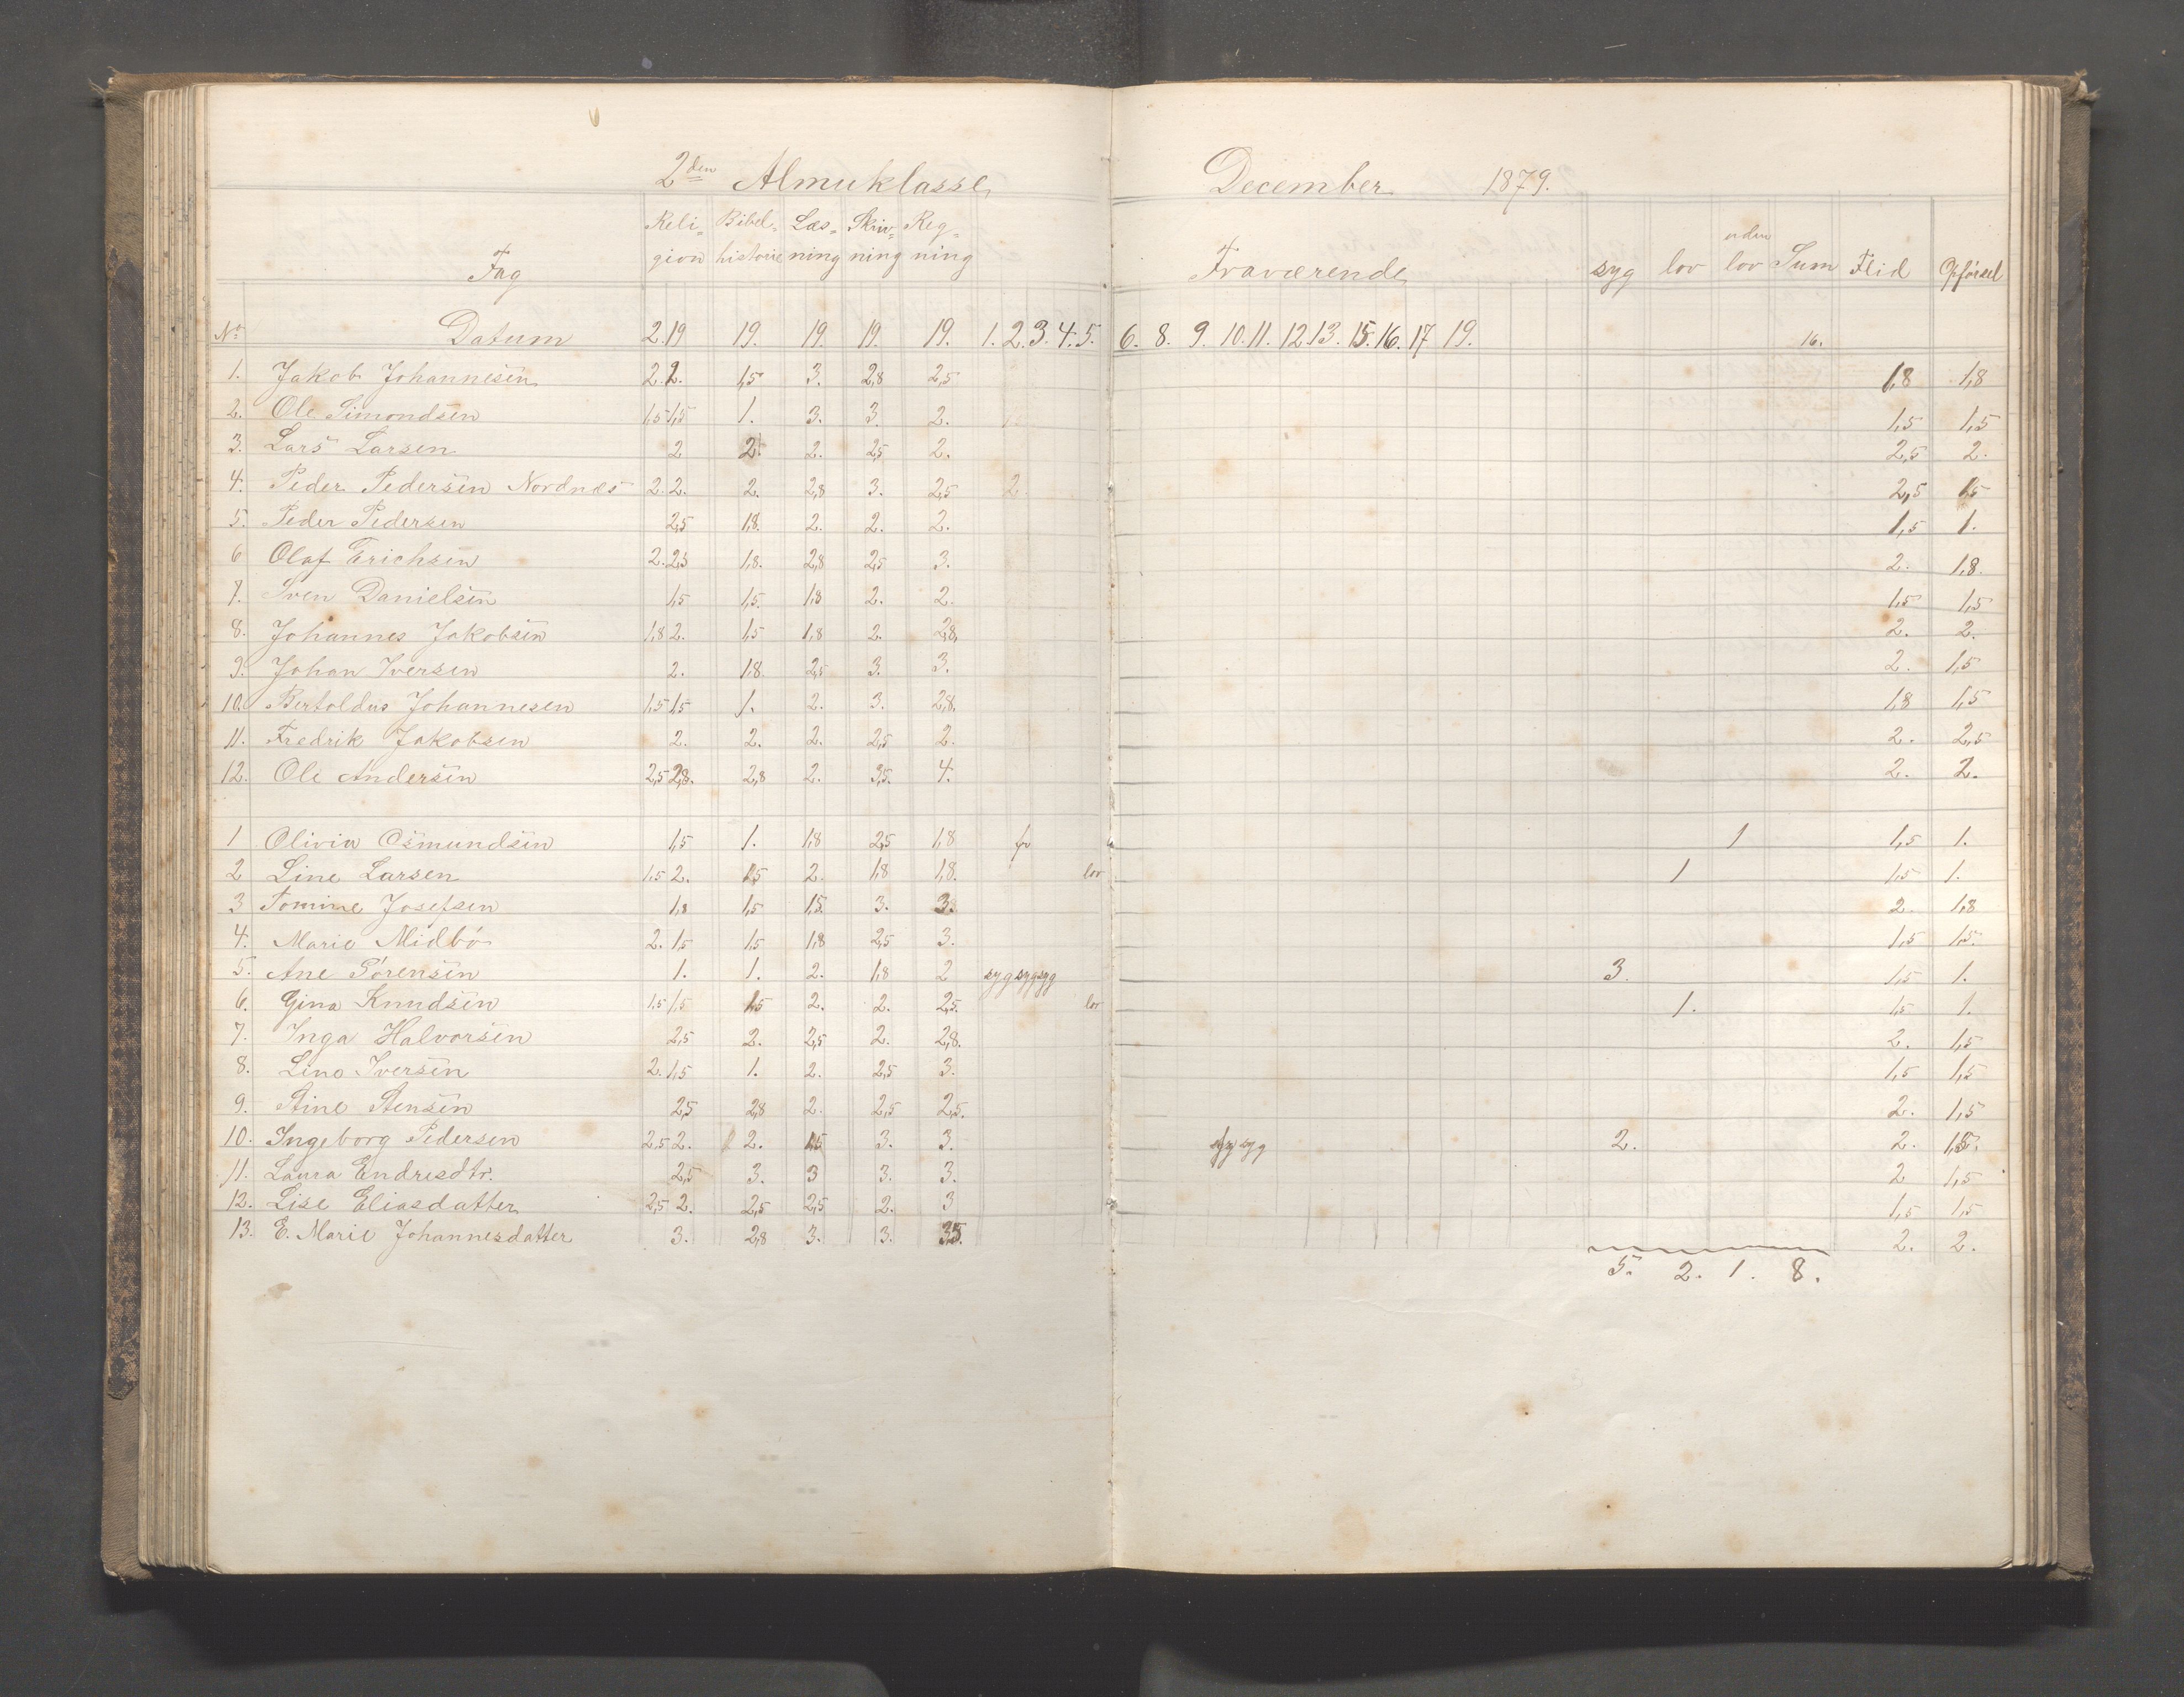 2den Almuklasse December 1879.
Reli= Bibel= Læs= Skriv= Reg= uden
Fag gion historie ning ning ning Fraværende syg lov lov Sum Flid Opførsel
No Datum 2. 19 19. 19. 19. 19. 1. 2. 3. 4. 5. 6. 8. 9. 10. 11. 12. 13. 15. 16. 17 19. 16.
1. Jakob Johannesen 2. 2. 1,5 3. 2,8 2,5 1,8 1,8
2. Ole Simondsen 1,5 1,5 1. 3. 3. 2. 1,5 1,5
3. Lars Larsen 2 2. 2. 2,5 2. 2,5 2.
4. Peder Pedersen Nordnæs 2. 2. 2. 2,8 3. 2,5 2. 2,5 1,5
5. Peder Pedersen 2,5 1,8. 2. 2. 2. 1,5 1.
6 Olaf Erichsen 2. 2,5 1,8. 2,8 2,5 3. 2. 1,8.
7. Sven Danielsen 1,5 1,5. 1,8 2. 2. 1,5 1,5
8. Johannes Jakobsen 1,8 2. 1,5 1,8 2. 2,8. 2. 2.
9. Johan Iversen 2. 1,8. 2,5 3. 3. 2. 1,5
10. Bertoldus Johannesen 1,5 1,5 1. 2. 3. 2,8. 1,8 1,5
11. Fredrik Jakobsen 2. 2. 2. 2,5 2. 2. 2,5
12. Ole Andersen 2,5 2,8. 2,8 2. 3,5. 4. 2. 2.
1 Olivia Osmundsen 1,5 1. 1,8 2,5 1,8 fr 1 1,5 1.
2 Line Larsen 1,5 2. 1,5 2. 1,8 1,8. lov 1 1,5 1.
3 Tomine Josefsen 1,8 1,5 1,5. 3. 3. 2. 1,8
4. Marie Midbö 2. 1,5 1,5 1,8 2,5 3. 1,5 1,5.
5. Ane Sörensen 1. 1. 2. 1,8 2 syg syg syg 3. 1,5 1.
6. Gina Knudsen 1,5 1,5 1,5 2. 2. 2,5. lov 1. 1,5 1.
7. Inga Halvorsen 2,5 2. 2,5 2. 2,8. 2. 1,5
8. Lino Iversen 2. 1,5 1. 2. 2,5 3. 1,5 1,5
9. Stine Stensen 2,5 2,8 2. 2,5 2,5. 2. 1,5
10. Ingeborg Pedersen 2,5 2. 2. 1,5 3. 3. syg syg 2. 2. 1,8.
11. Laura Endresdtr. 2,5 3. 3 3. 3. 2 1,5
12. Lise Eliasdatter 2,5 2. 2,5 2,5 2. 3 1,5 1,5
13. E. Marie Johannesdatter 3. 2,8 3. 3. 3,5. 2. 2.
5. 2. 1. 8.